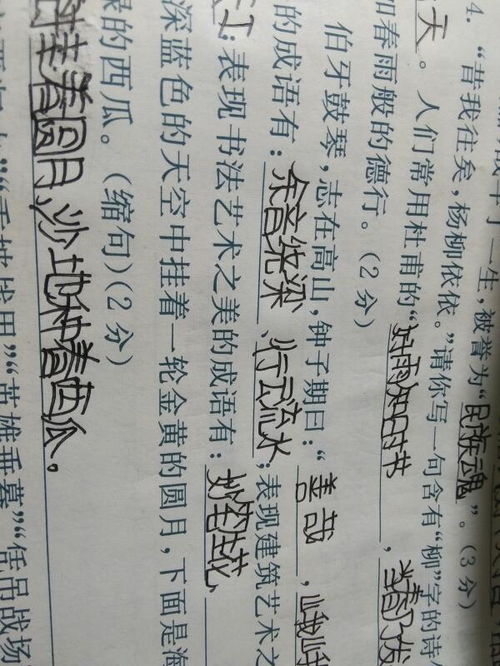 一生,被誉为“民族魂”。(3分)
4. “昔我往矣,杨柳依依。”请你写一句含有“柳”字的诗
天。人们常用杜甫的“好雨知时节,当春乃发
如春雨般的德行。(2分)
伯牙鼓琴,志在高山,钟子期曰:“善哉,峨峨
的成语有:余音绕梁、行云流水;表现建筑艺术之
工;表现书法艺术之美的成语有:妙笔生花、
深蓝色的天空中挂着一轮金黄的圆月,下面是海
绿的西瓜。(缩句)(2分)
挂着圆月,沙地种着西瓜。
”“英雄垂暮”“凭吊战场